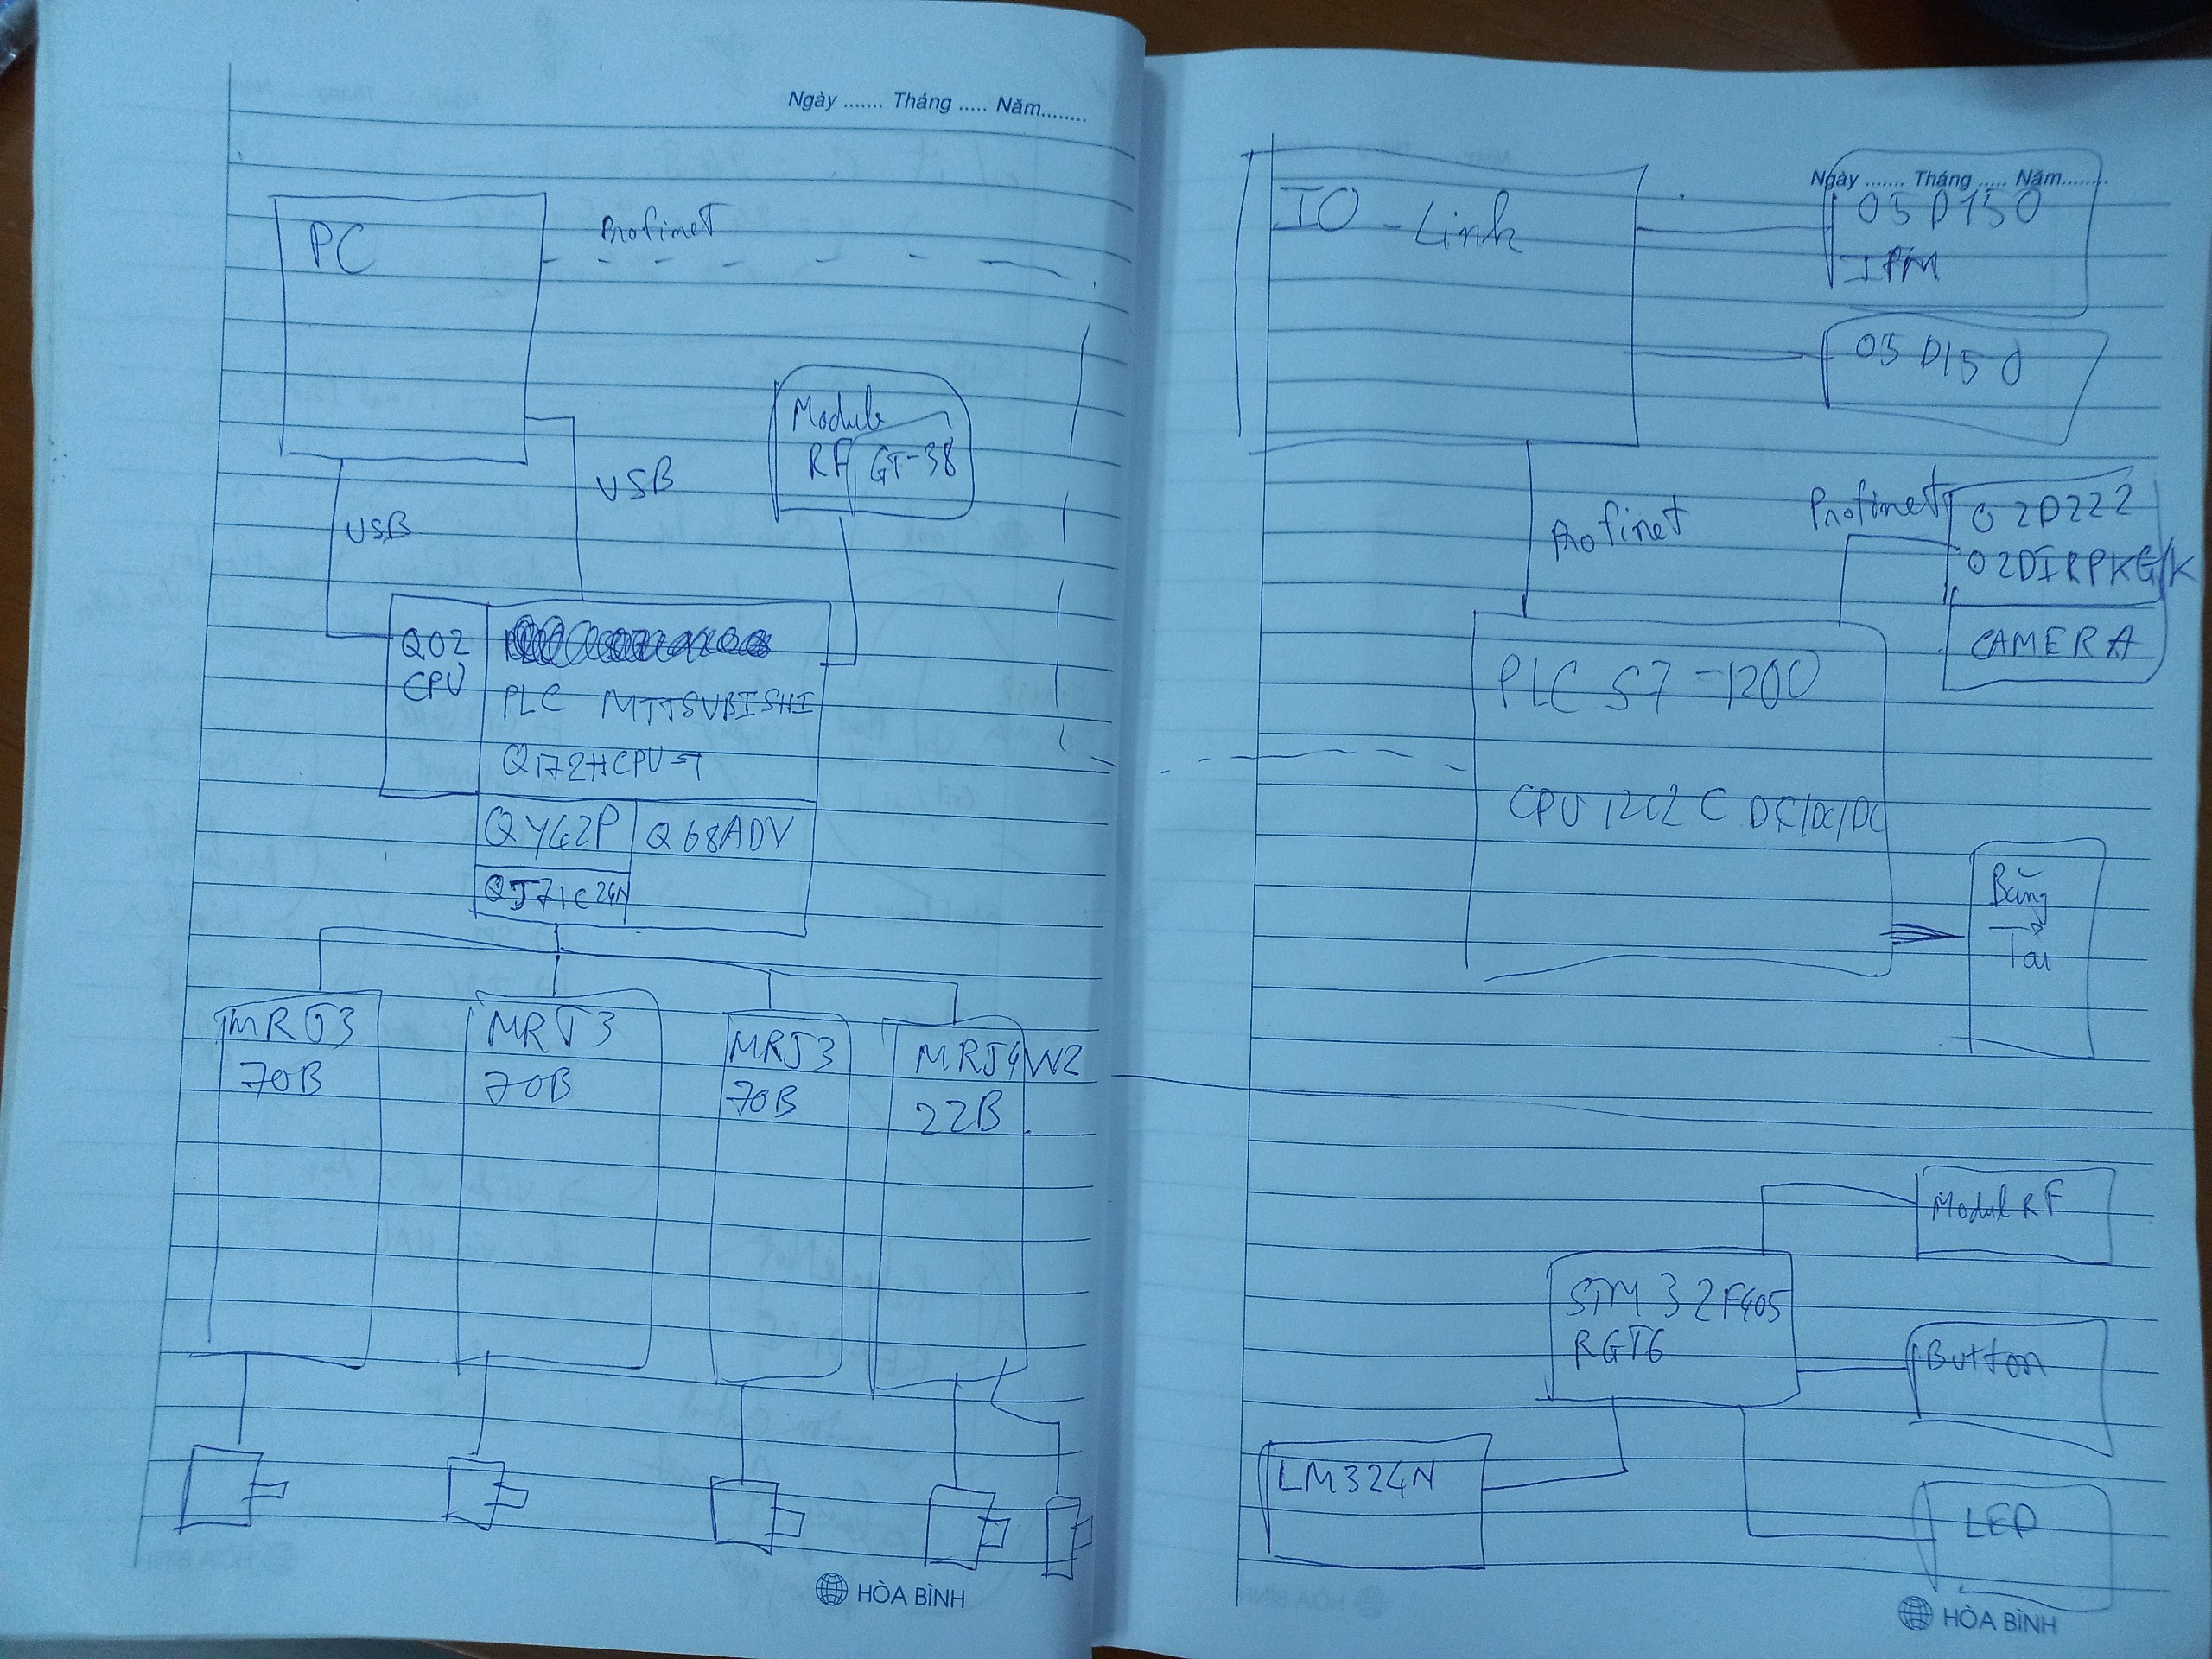 Ngày ....... Tháng ..... Năm........
PC
Profinet
Module
RF GT-38
USB
USB
Q02
CPU
PLC MITSUBISHI
Q172HCPU-T
QY42P
Q68ADV
QJ71C24N
MRJ3
70B
MRJ3
70B
MRJ3
70B
MRJ4W2
22B
HÒA BÌNH
Ngày ....... Tháng ..... Năm........
IO - Link
O5D150
O5D150
Profinet
Profinet
O2D222
O2DIRPKG/K
CAMERA
PLC S7-1200
CPU 1212C DC/DC/DC
Băng
Tải
Modul RF
STM32F405
RGT6
Button
LM324N
LED
HÒA BÌNH